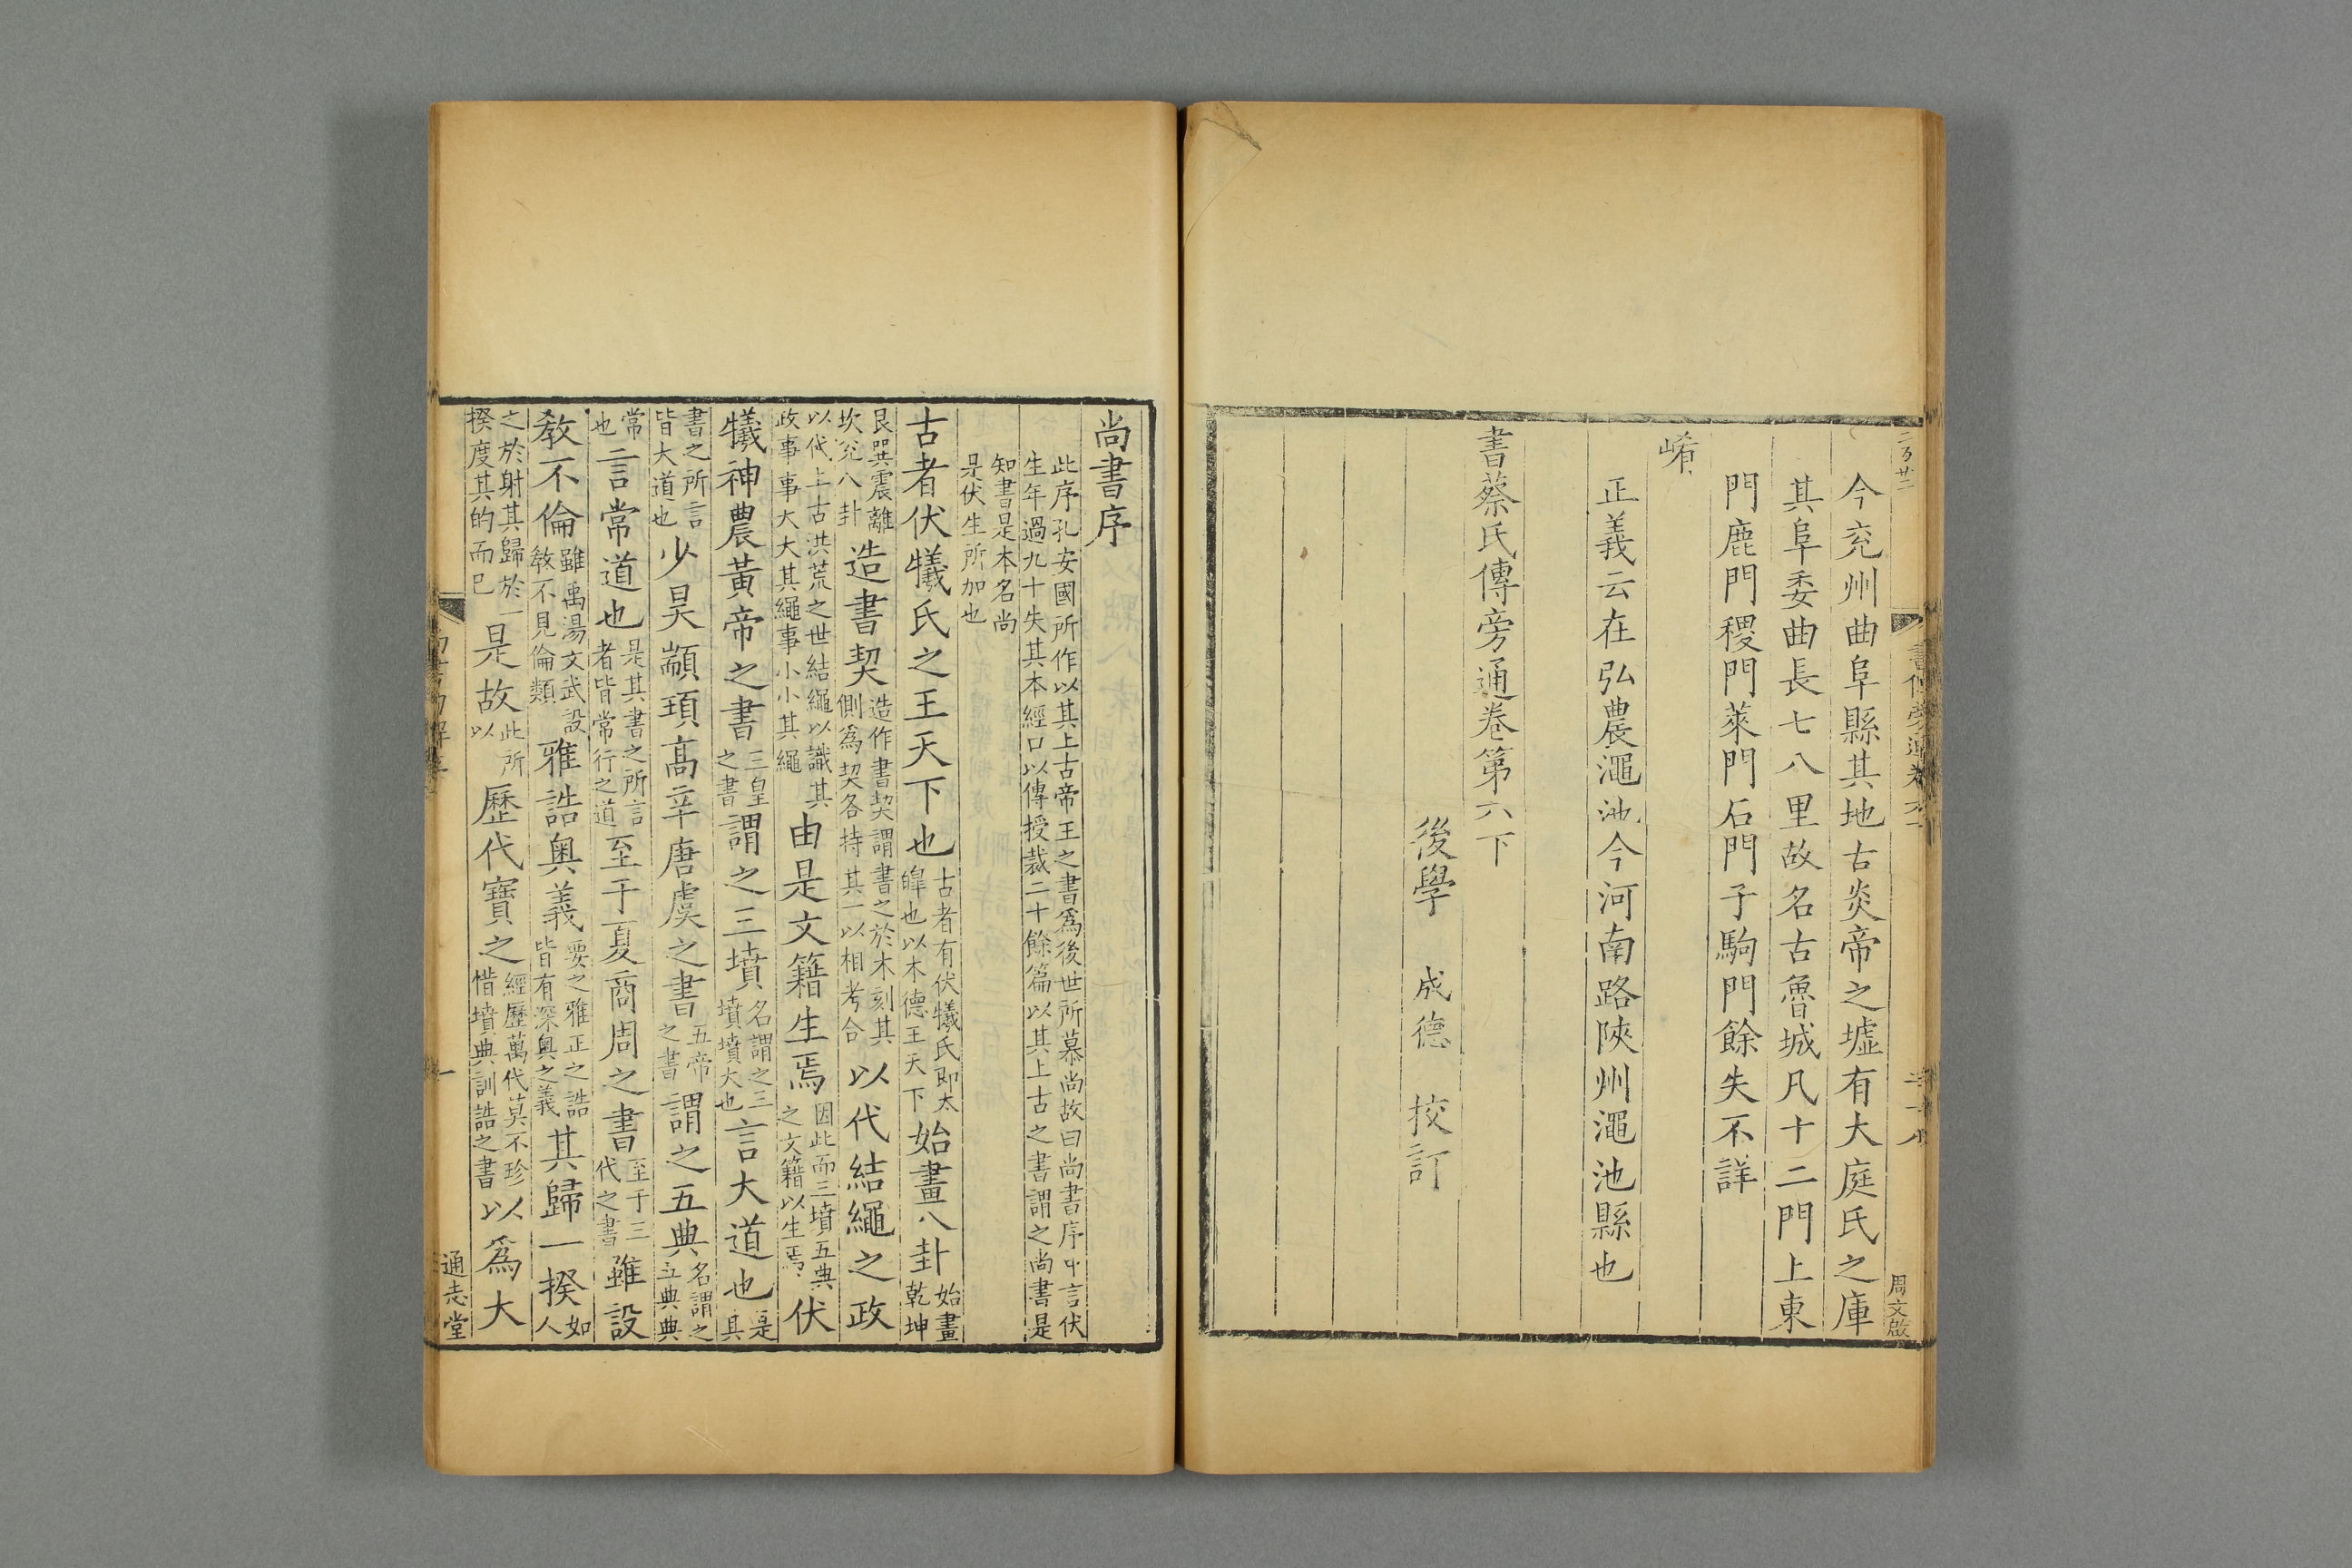 二百廿二
周文啟
今兖州曲阜縣其地古炎帝之墟有大庭氏之庫
其阜委曲長七八里故名古魯城凡十二門上東
門鹿門稷門萊門石門子駒門餘失不詳
崤
正義云在弘農澠池今河南路陝州澠池縣也
書蔡氏傳旁通卷第六下
後學 成德 校訂
尚書序
此序孔安國所作以其上古帝王之書爲後世所慕尚故曰尚書序中言伏
生年過九十失其本經口以傳授裁二十餘篇以其上古之書謂之尚書是
知書是本名尚
是伏生所加也
古者伏犧氏之王天下也古者有伏犧氏即太皥也以木德王天下始畫八卦始畫乾坤
艮巽震離坎兊八卦造書契造作書契謂書之於木刻其側爲契各持其一以相考合以代結繩之政
以代上古洪荒之世結繩以識其政事事大大其繩事小小其繩由是文籍生焉因此而三墳五典之文籍以生焉伏
犧神農黃帝之書三皇之書謂之三墳名謂之三墳墳大也言大道也是其
書之所言皆大道也少昊顓頊高辛唐虞之書五帝之書謂之五典名謂之五典典
常也言常道也是其書之所言者皆常行之道至于夏商周之書至于三代之書雖設
教不倫雖禹湯文武設教不見倫類雅誥奥義要之雅正之誥皆有深奧之義其歸一揆如人
之於射其歸於一揆度其的而已是故此所以歷代寶之經歷萬代莫不珍惜墳典訓誥之書以爲大
一
通志堂